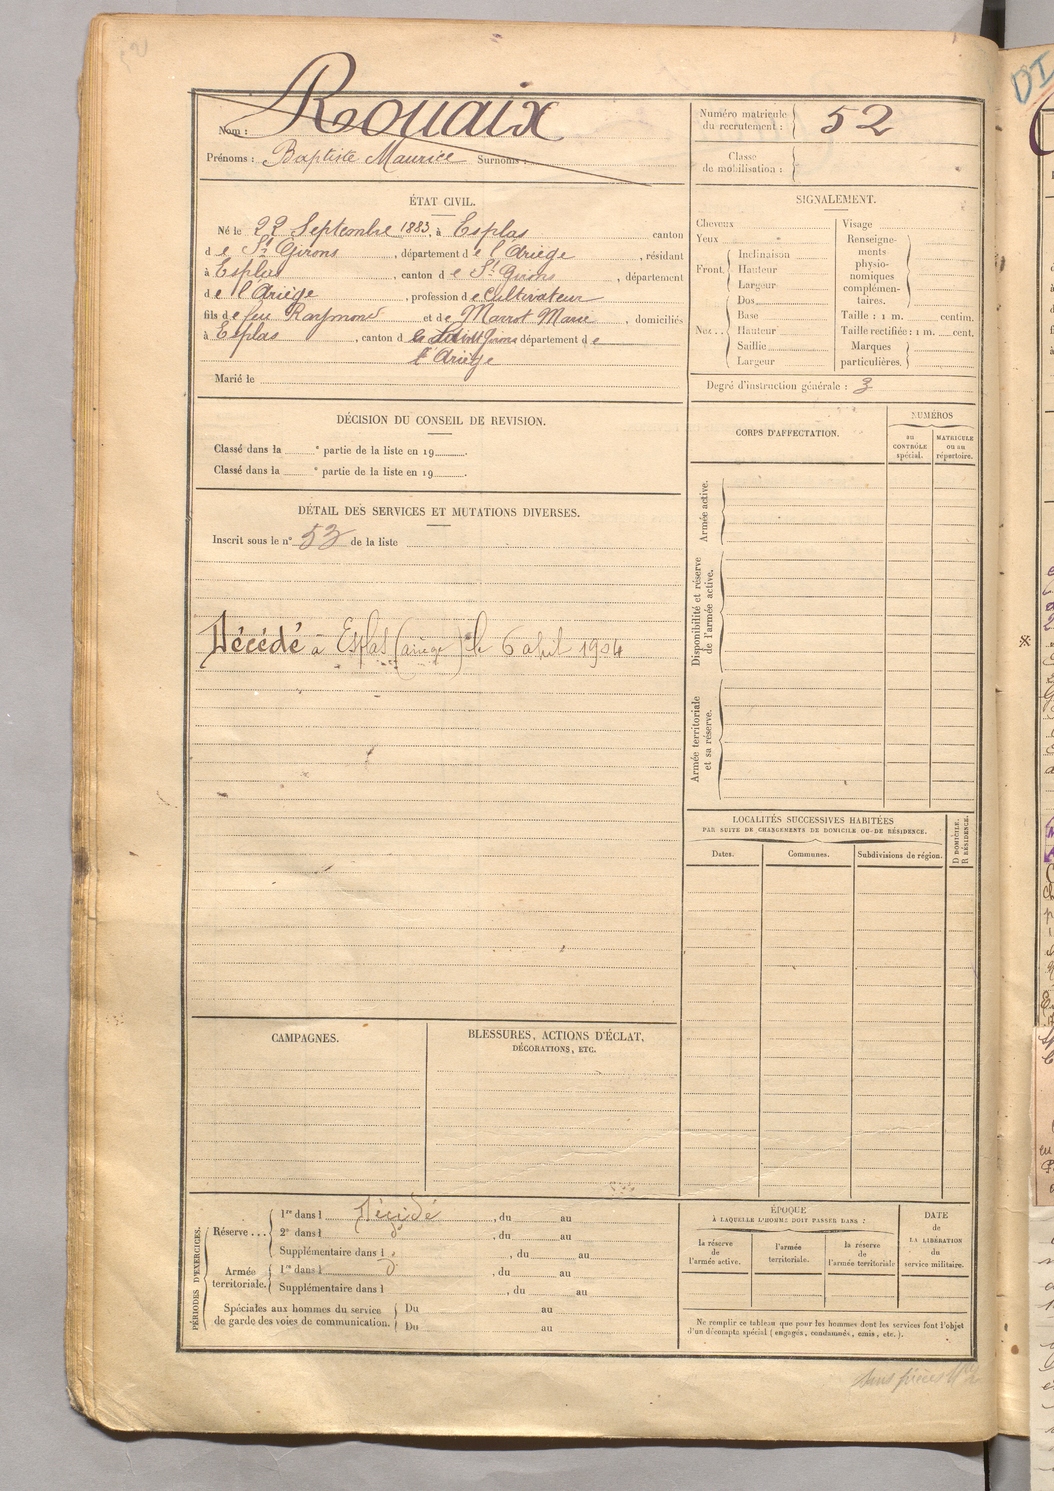 Nom : Rouaix
Prénoms : Baptiste Maurice Surnoms :
Numéro matricule du recrutement : 52
Classe de mobilisation :
ÉTAT CIVIL.
Né le 22 Septembre 1883, à Esplas canton
de St Girons, département de l'Ariège, résidant
à Esplas, canton de St Girons, département
de l'Ariège, profession de cultivateur
fils de feu Raymond et de Marrot Marie, domiciliés
à Esplas, canton de Saint Girons département de
l'Ariège
Marié le
SIGNALEMENT.
Cheveux
Yeux
Front. Inclinaison
Hauteur
Largeur
Nez.. Dos
Base
Hauteur
Saillie
Largeur
Visage
Renseignements physionomiques complémentaires.
Taille : 1 m. centim.
Taille rectifiée : 1 m. cent.
Marques particulières.
Degré d'instruction générale : 3
DÉCISION DU CONSEIL DE REVISION.
Classé dans la e partie de la liste en 19 .
Classé dans la e partie de la liste en 19 .
CORPS D'AFFECTATION.
NUMÉROS
au CONTRÔLE spécial.
MATRICULE ou au répertoire.
Armée active.
Disponibilité et réserve de l'armée active.
Armée territoriale et sa réserve.
DÉTAIL DES SERVICES ET MUTATIONS DIVERSES.
Inscrit sous le n° 53 de la liste
Décédé à Esplas (ariège) le 6 abril 1904
LOCALITÉS SUCCESSIVES HABITÉES
PAR SUITE DE CHANGEMENTS DE DOMICILE OU DE RÉSIDENCE.
Dates.
Communes.
Subdivisions de région.
D DOMICILE.
R RÉSIDENCE.
CAMPAGNES.
BLESSURES, ACTIONS D'ÉCLAT,
DÉCORATIONS, ETC.
PÉRIODES D'EXERCICES.
Réserve ... 1re dans l Décédé, du au
2e dans l , du au
Supplémentaire dans l , du au
Armée territoriale. 1re dans l , du au
Supplémentaire dans l , du au
Spéciales aux hommes du service
de garde des voies de communication.
Du au
Du au
ÉPOQUE
À LAQUELLE L'HOMME DOIT PASSER DANS :
la réserve de l'armée active.
l'armée territoriale.
la réserve de l'armée territoriale
DATE de LA LIBÉRATION du service militaire.
Ne remplir ce tableau que pour les hommes dont les services font l'objet
d'un décompte spécial (engagés, condamnés, omis, etc.).
sans pièces